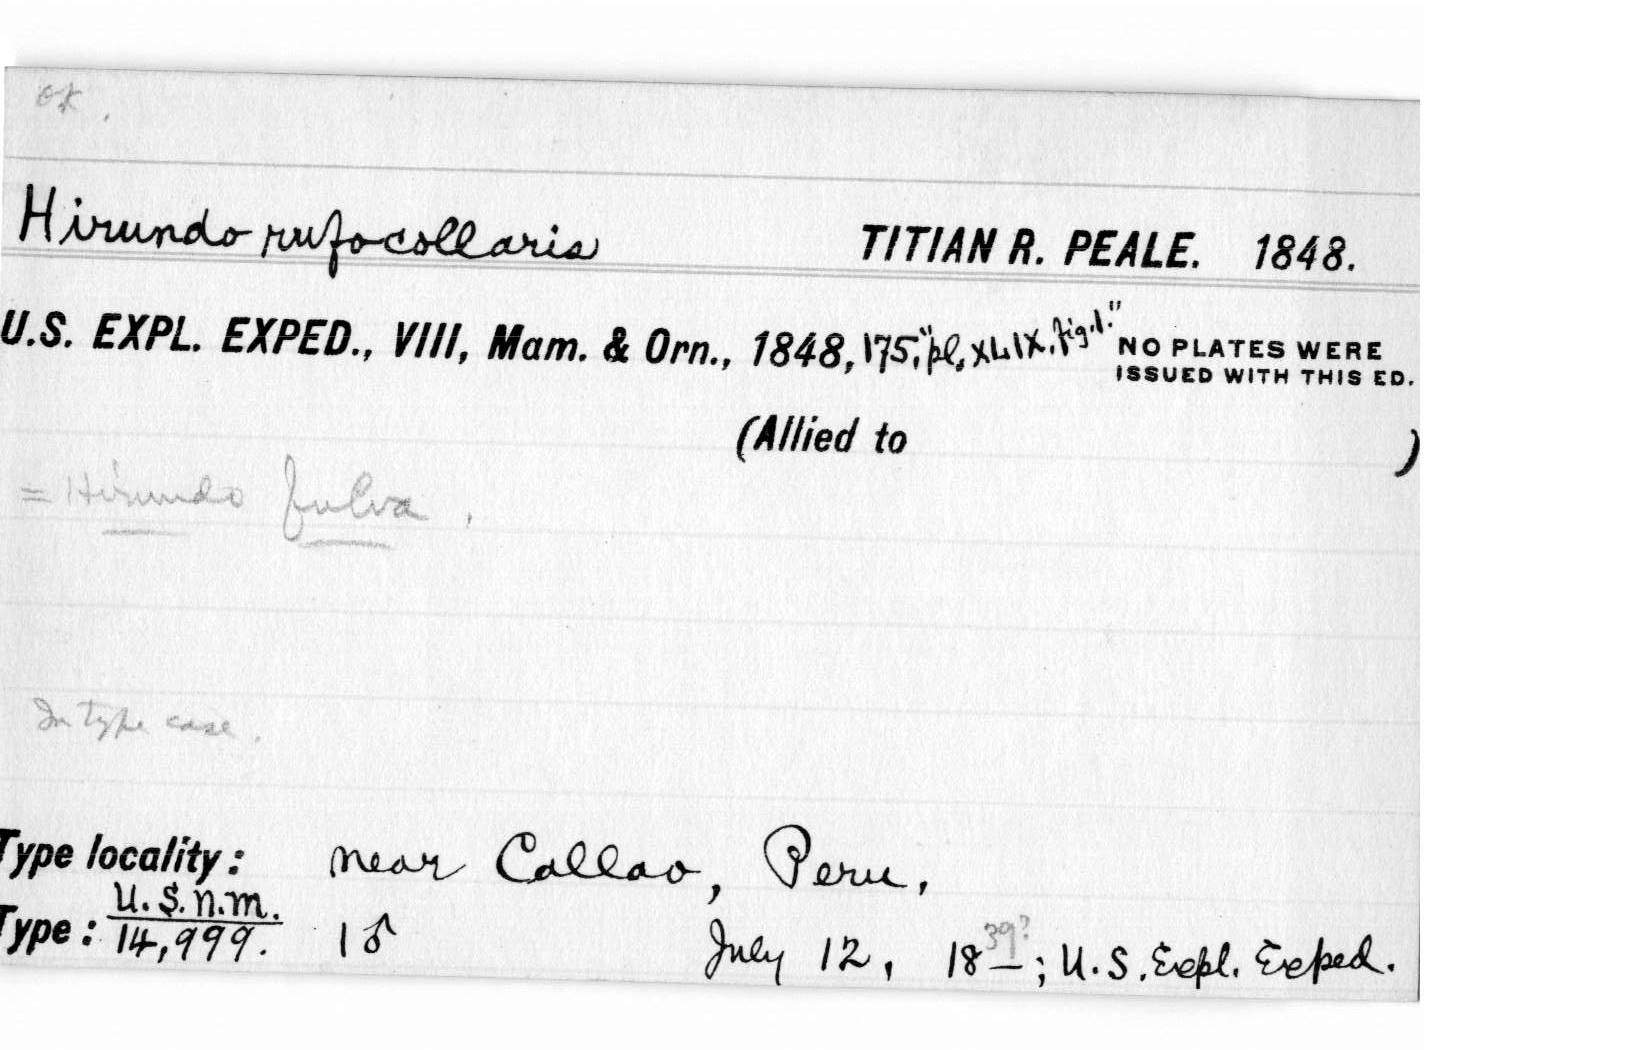 OK.
Hirundo rufocollaris TITIAN R. PEALE. 1848.
U.S. EXPL. EXPED., VIII, Mam. & Orn., 1848, 175, "pl, XLIX. fig. 1." NO PLATES WERE
ISSUED WITH THIS ED.
(Allied to )
= Hirundo fulva.
In type case.
Type locality: near Callao, Peru.
Type: U.S.N.M. 14,999. 1♂ July 12, 18— 39?; U.S. Expl. Exped.